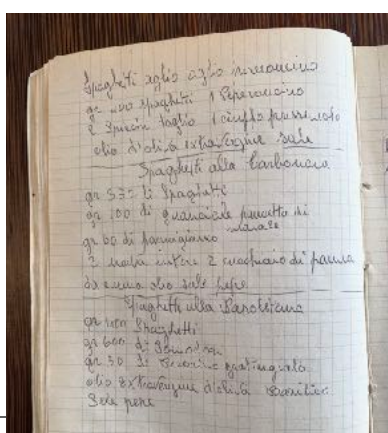 Spaghetti aglio oglio
gr 400 spaghetti 1 Peperoncino
2 Spicchi d'aglio 1 ciuffo prezzemolo
olio d'oliva extravergine sale
Spaghetti alla Carbonara
gr di Spaghetti
gr 100 di guanciale pancetta di
maiale
gr 60 di parmigiano
2 uova intere 2 cucchiaio di panna
da cucina olio sale pepe
Spaghetti alla
gr 400 Spaghetti
gr 600 di
gr 50 di grattugiato
olio extravergine d'oliva Basilico
Sale pepe